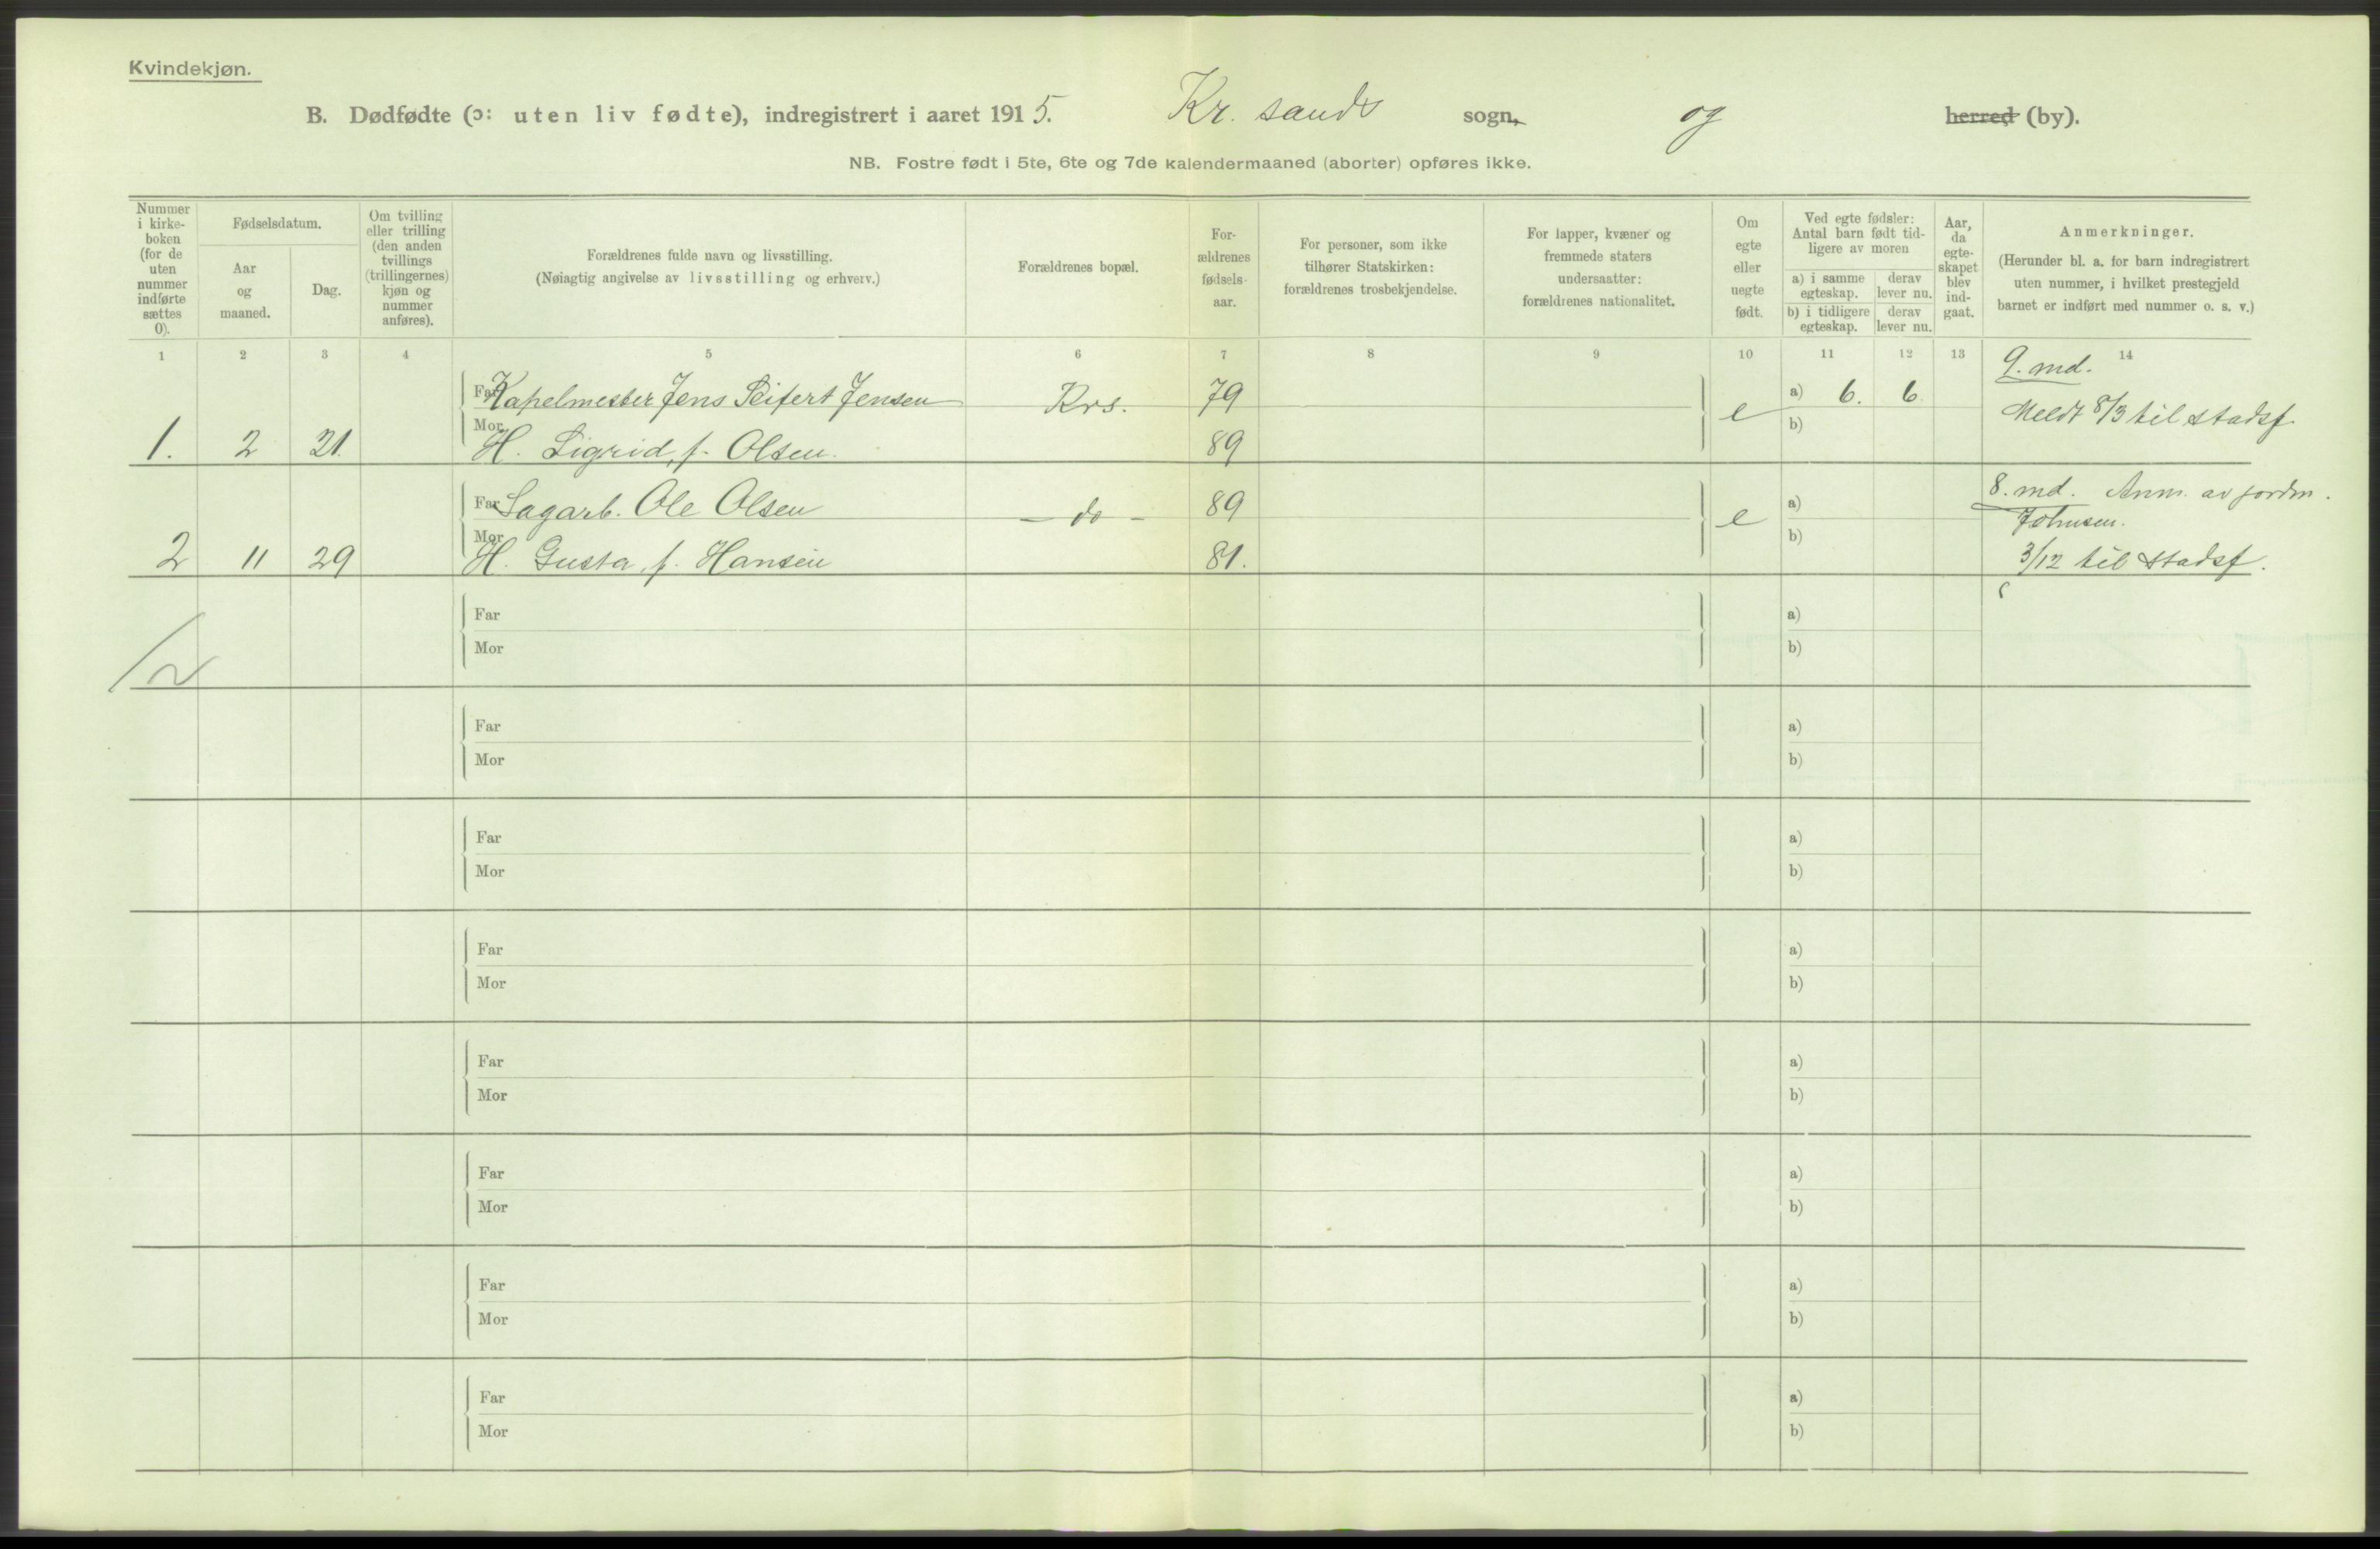 Kvindekjøn.
B. Dødfødte (ɔ: uten liv fødte), indregistrert i aaret 1915. Kr. sands sogn, og herred (by).
NB. Fostre født i 5te, 6te og 7de kalendermaaned (aborter) opføres ikke.
Nummer i kirke-boken (for de uten nummer indførte sættes 0).
Fødselsdatum.
Aar og maaned.
Dag.
Om tvilling eller trilling (den anden tvillings (trillingernes) kjøn og nummer anføres).
Forældrenes fulde navn og livsstilling.
(Nøiagtig angivelse av livsstilling og erhverv.)
Forældrenes bopæl.
For-ældrenes fødsels-aar.
For personer, som ikke tilhører Statskirken: forældrenes trosbekjendelse.
For lapper, kvæner og fremmede staters undersaatter: forældrenes nationalitet.
Om egte eller uegte født.
Ved egte fødsler: Antal barn født tid-ligere av moren
a) i samme egteskap. derav lever nu.
b) i tidligere egteskap. derav lever nu.
Aar, da egte-skapet blev ind-gaat.
Anmerkninger.
(Herunder bl. a. for barn indregistrert uten nummer, i hvilket prestegjeld barnet er indført med nummer o. s. v.)
1 2 3 4 5 6 7 8 9 10 11 12 13 14
9. md.
Far Kapelmester Jens Seifert Jensen Krs. 79 e a) 6. 6 Meldt 8/3 til stadsf.
1. 2 21. Mor H. Sigrid, f. Olsen. 89 b)
8. md. Anm. av jordm.
Far Sagarb. Ole Olsen - do - 89 e a) Johnsen.
2 11 29 Mor H. Gusta, f. Hansen 81. b) 3/12 til stadsf.
Far a)
Mor b)
2
Far a)
Mor b)
Far a)
Mor b)
Far a)
Mor b)
Far a)
Mor b)
Far a)
Mor b)
Far a)
Mor b)
Far a)
Mor b)